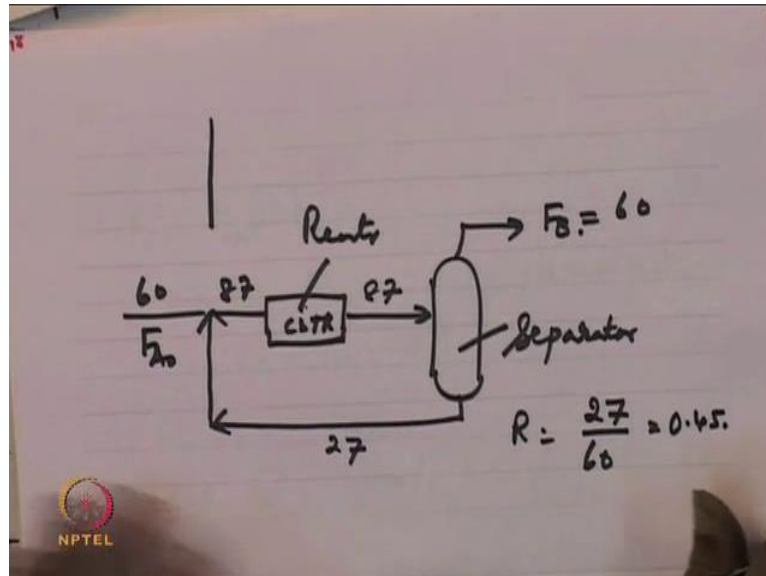 Reactor
F_B. = 60
60
87
CSTR
87
F_A0
Separator
27
R = 27/60 = 0.45.
NPTEL